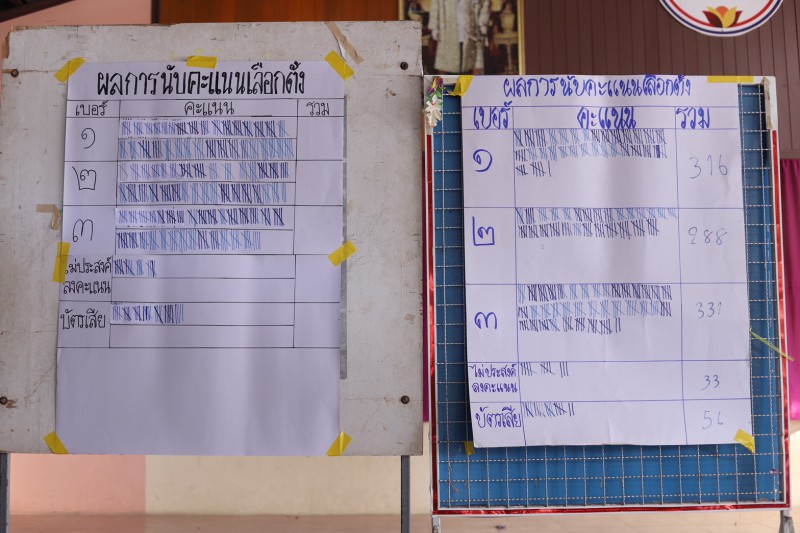 ผลการนับคะแนนเลือกตั้ง
เบอร์ คะแนน รวม
๑
๒
๓
ไม่ประสงค์
ลงคะแนน
บัตรเสีย
ผลการนับคะแนนเลือกตั้ง
เบอร์ คะแนน รวม
๑ 316
๒ 288
๓ 331
ไม่ประสงค์
ลงคะแนน 33
บัตรเสีย